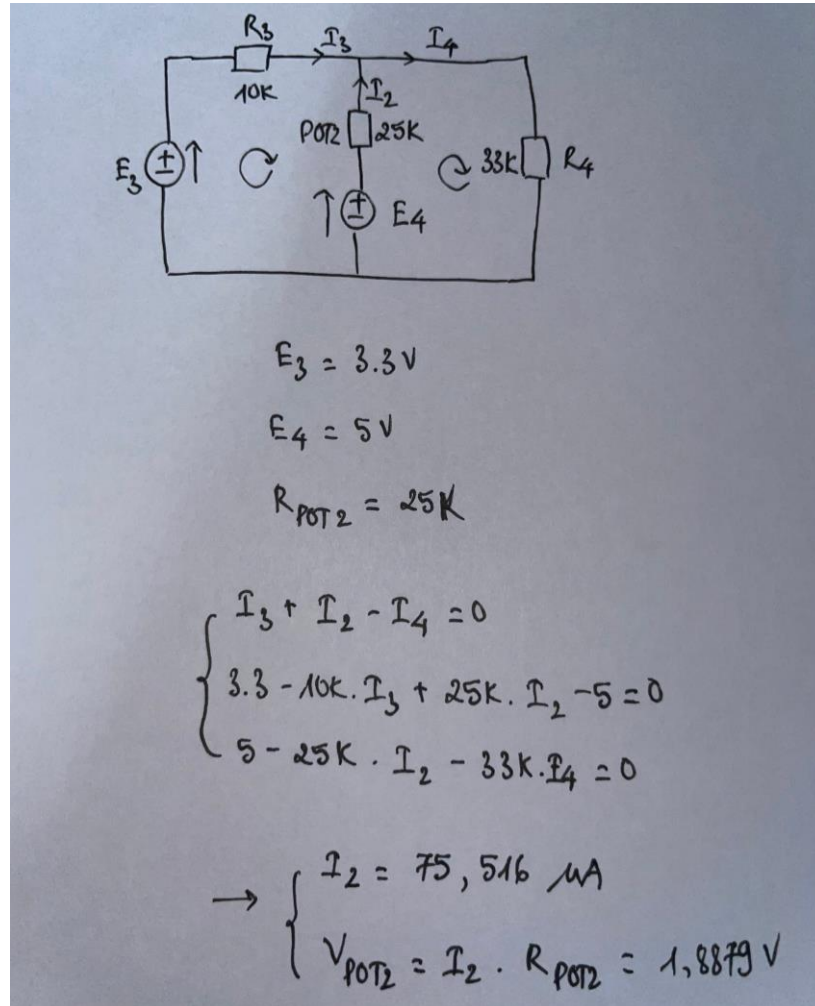 R3 I3 I4
10K I2
POT2 25K
E3 33K R4
E4
E3 = 3.3 V
E4 = 5 V
R POT2 = 25K
I3 + I2 - I4 = 0
3.3 - 10K. I3 + 25K. I2 - 5 = 0
5 - 25K . I2 - 33K. I4 = 0
→ I2 = 75,516 μA
V POT2 = I2 . R POT2 = 1,8879 V